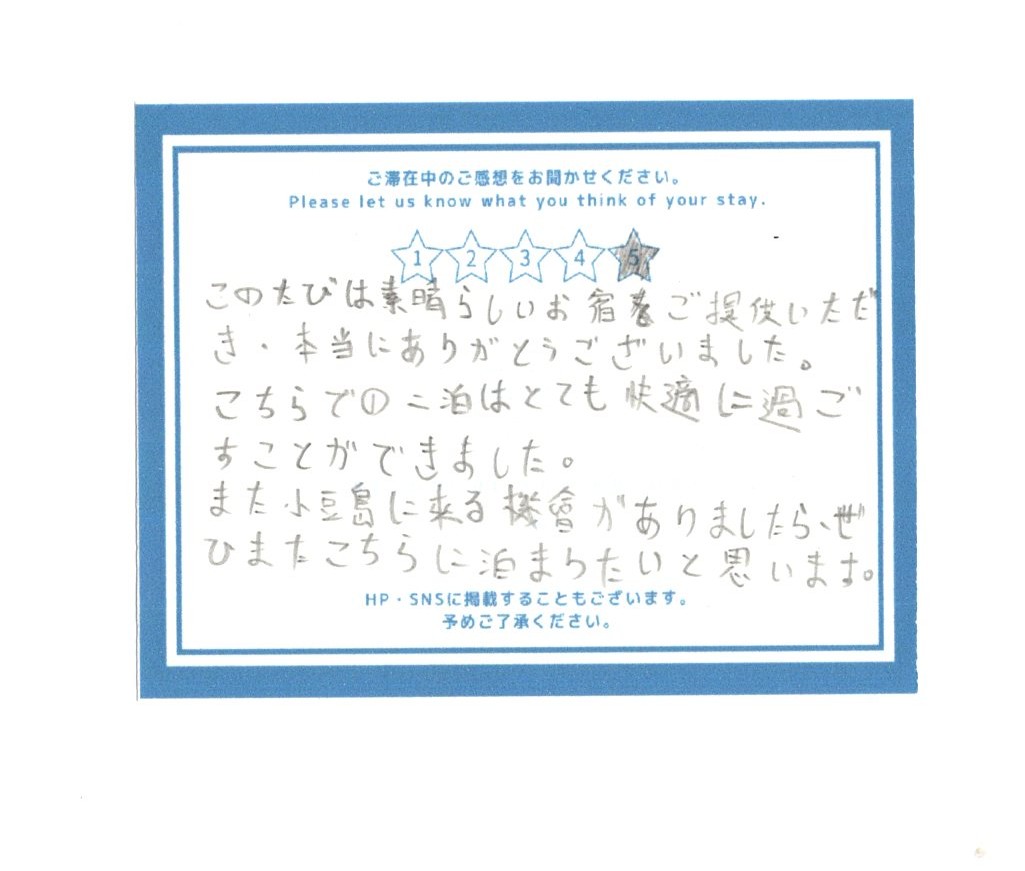 ご滞在中のご感想をお聞かせください。
Please let us know what you think of your stay.
1 2 3 4 5
このたびは素晴らしいお宿をご提供いただ
き、本当にありがとうございました。
こちらでの二泊はとても快適に過ご
すことができました。
また小豆島に来る機會がありましたら、ぜ
ひまたこちらに泊まらたいと思います。
HP・SNSに掲載することもございます。
予めご了承ください。